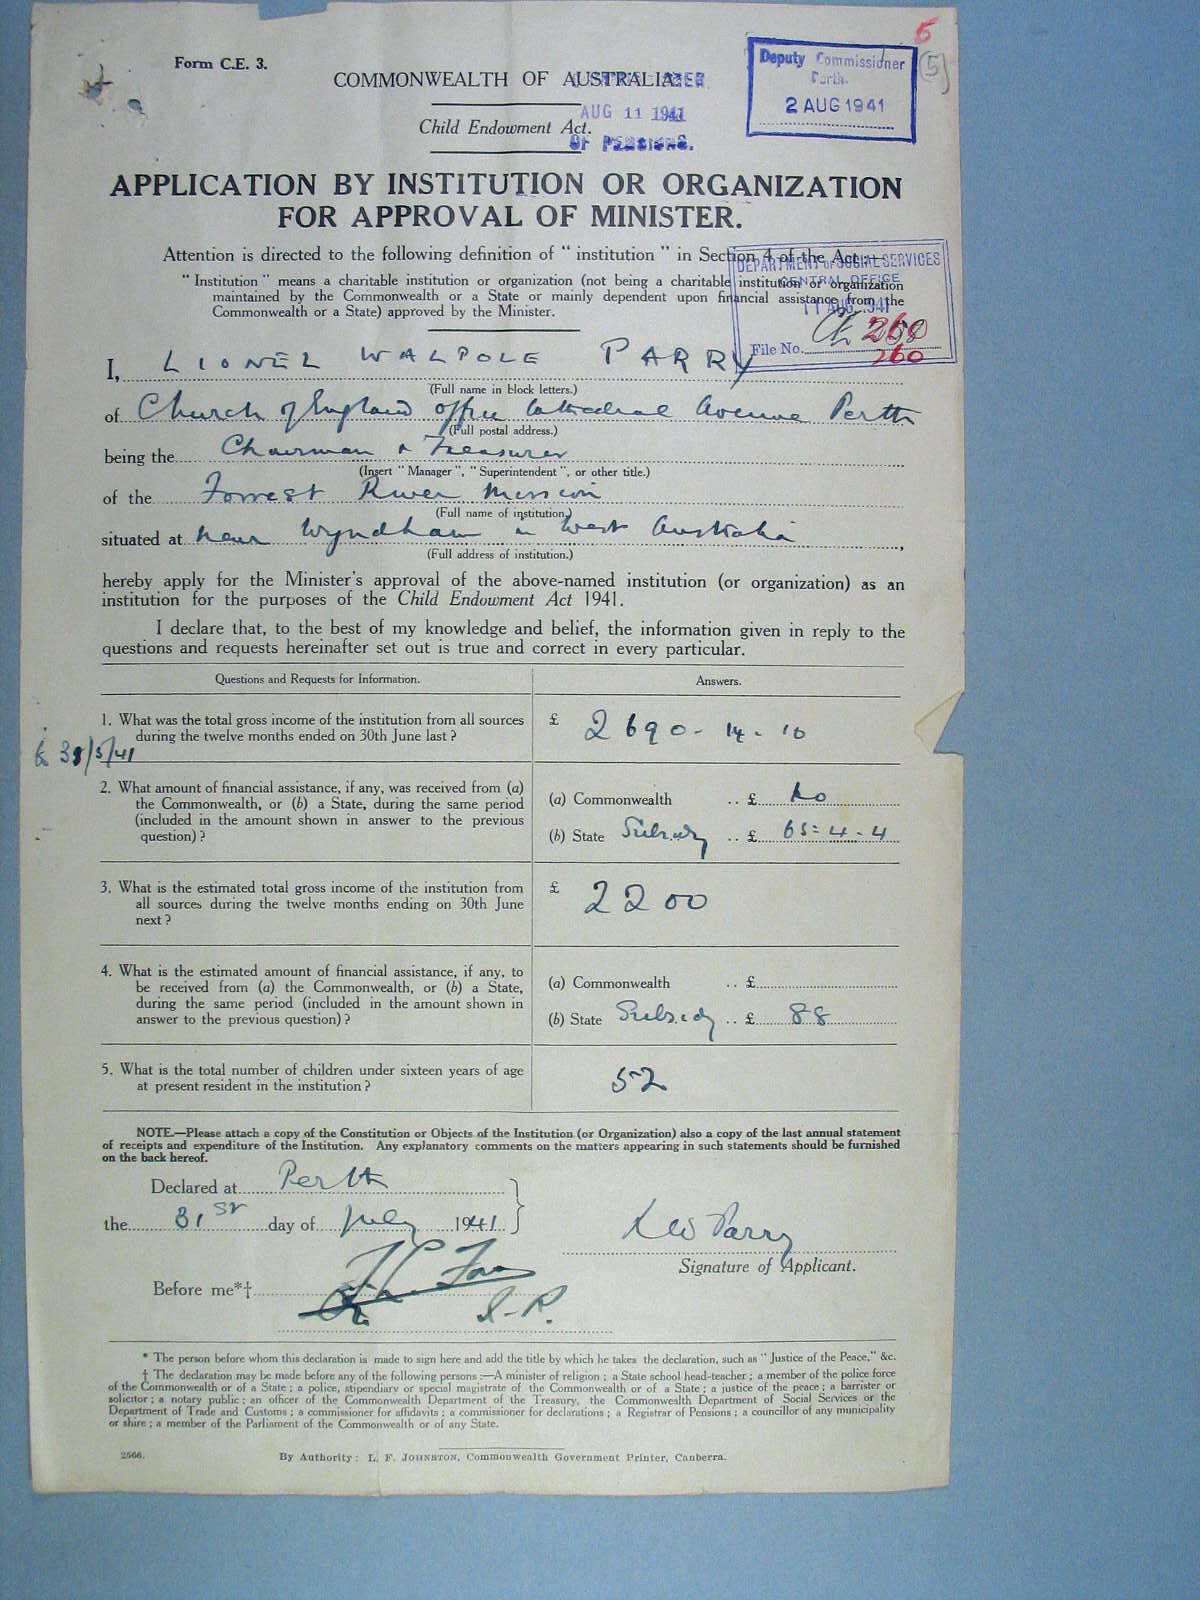 6
(5)
Form C.E. 3.
COMMONWEALTH OF AUSTRALIA.
AUG 11 1941
OF PENSIONS.
Deputy Commissioner
Perth.
2 AUG 1941
Child Endowment Act.
APPLICATION BY INSTITUTION OR ORGANIZATION
FOR APPROVAL OF MINISTER.
Attention is directed to the following definition of " institution " in Section 4 of the Act :—
" Institution " means a charitable institution or organization (not being a charitable institution or organization
maintained by the Commonwealth or a State or mainly dependent upon financial assistance from the
Commonwealth or a State) approved by the Minister.
DEPARTMENT OF SOCIAL SERVICES
CENTRAL OFFICE
11 AUG 1941
File No.
260
I, LIONEL WALPOLE PARRY
(Full name in block letters.)
of Church of England office Cathedral Avenue Perth
(Full postal address.)
being the Chairman & Treasurer
(Insert " Manager ", " Superintendent ", or other title.)
of the Forrest River Mission
(Full name of institution.)
situated at near Wyndham in West Australia ,
(Full address of institution.)
hereby apply for the Minister's approval of the above-named institution (or organization) as an
institution for the purposes of the Child Endowment Act 1941.
I declare that, to the best of my knowledge and belief, the information given in reply to the
questions and requests hereinafter set out is true and correct in every particular.
Questions and Requests for Information.
Answers.
1. What was the total gross income of the institution from all sources
during the twelve months ended on 30th June last ?
£ 2690 - 14 - 10
2. What amount of financial assistance, if any, was received from (a)
the Commonwealth, or (b) a State, during the same period
(included in the amount shown in answer to the previous
question) ?
(a) Commonwealth .. £ No
(b) State Subsidy .. £ 65 = 4 - 4
3. What is the estimated total gross income of the institution from
all sources during the twelve months ending on 30th June
next ?
£ 2200
4. What is the estimated amount of financial assistance, if any, to
be received from (a) the Commonwealth, or (b) a State,
during the same period (included in the amount shown in
answer to the previous question) ?
(a) Commonwealth .. £
(b) State Subsidy .. £ 88
5. What is the total number of children under sixteen years of age
at present resident in the institution ?
52
NOTE.—Please attach a copy of the Constitution or Objects of the Institution (or Organization) also a copy of the last annual statement
of receipts and expenditure of the Institution. Any explanatory comments on the matters appearing in such statements should be furnished
on the back hereof.
Declared at Perth
the 31st day of July 1941
L W Parry
Signature of Applicant.
Before me*†
J.P.
* The person before whom this declaration is made to sign here and add the title by which he takes the declaration, such as " Justice of the Peace," &c.
† The declaration may be made before any of the following persons :—A minister of religion ; a State school head-teacher ; a member of the police force
of the Commonwealth or of a State ; a police, stipendiary or special magistrate of the Commonwealth or of a State ; a justice of the peace ; a barrister or
solicitor ; a notary public ; an officer of the Commonwealth Department of the Treasury, the Commonwealth Department of Social Services or the
Department of Trade and Customs ; a commissioner for affidavits ; a commissioner for declarations ; a Registrar of Pensions ; a councillor of any municipality
or shire ; a member of the Parliament of the Commonwealth or of any State.
2566.
By Authority : L. F. JOHNSTON, Commonwealth Government Printer, Canberra.